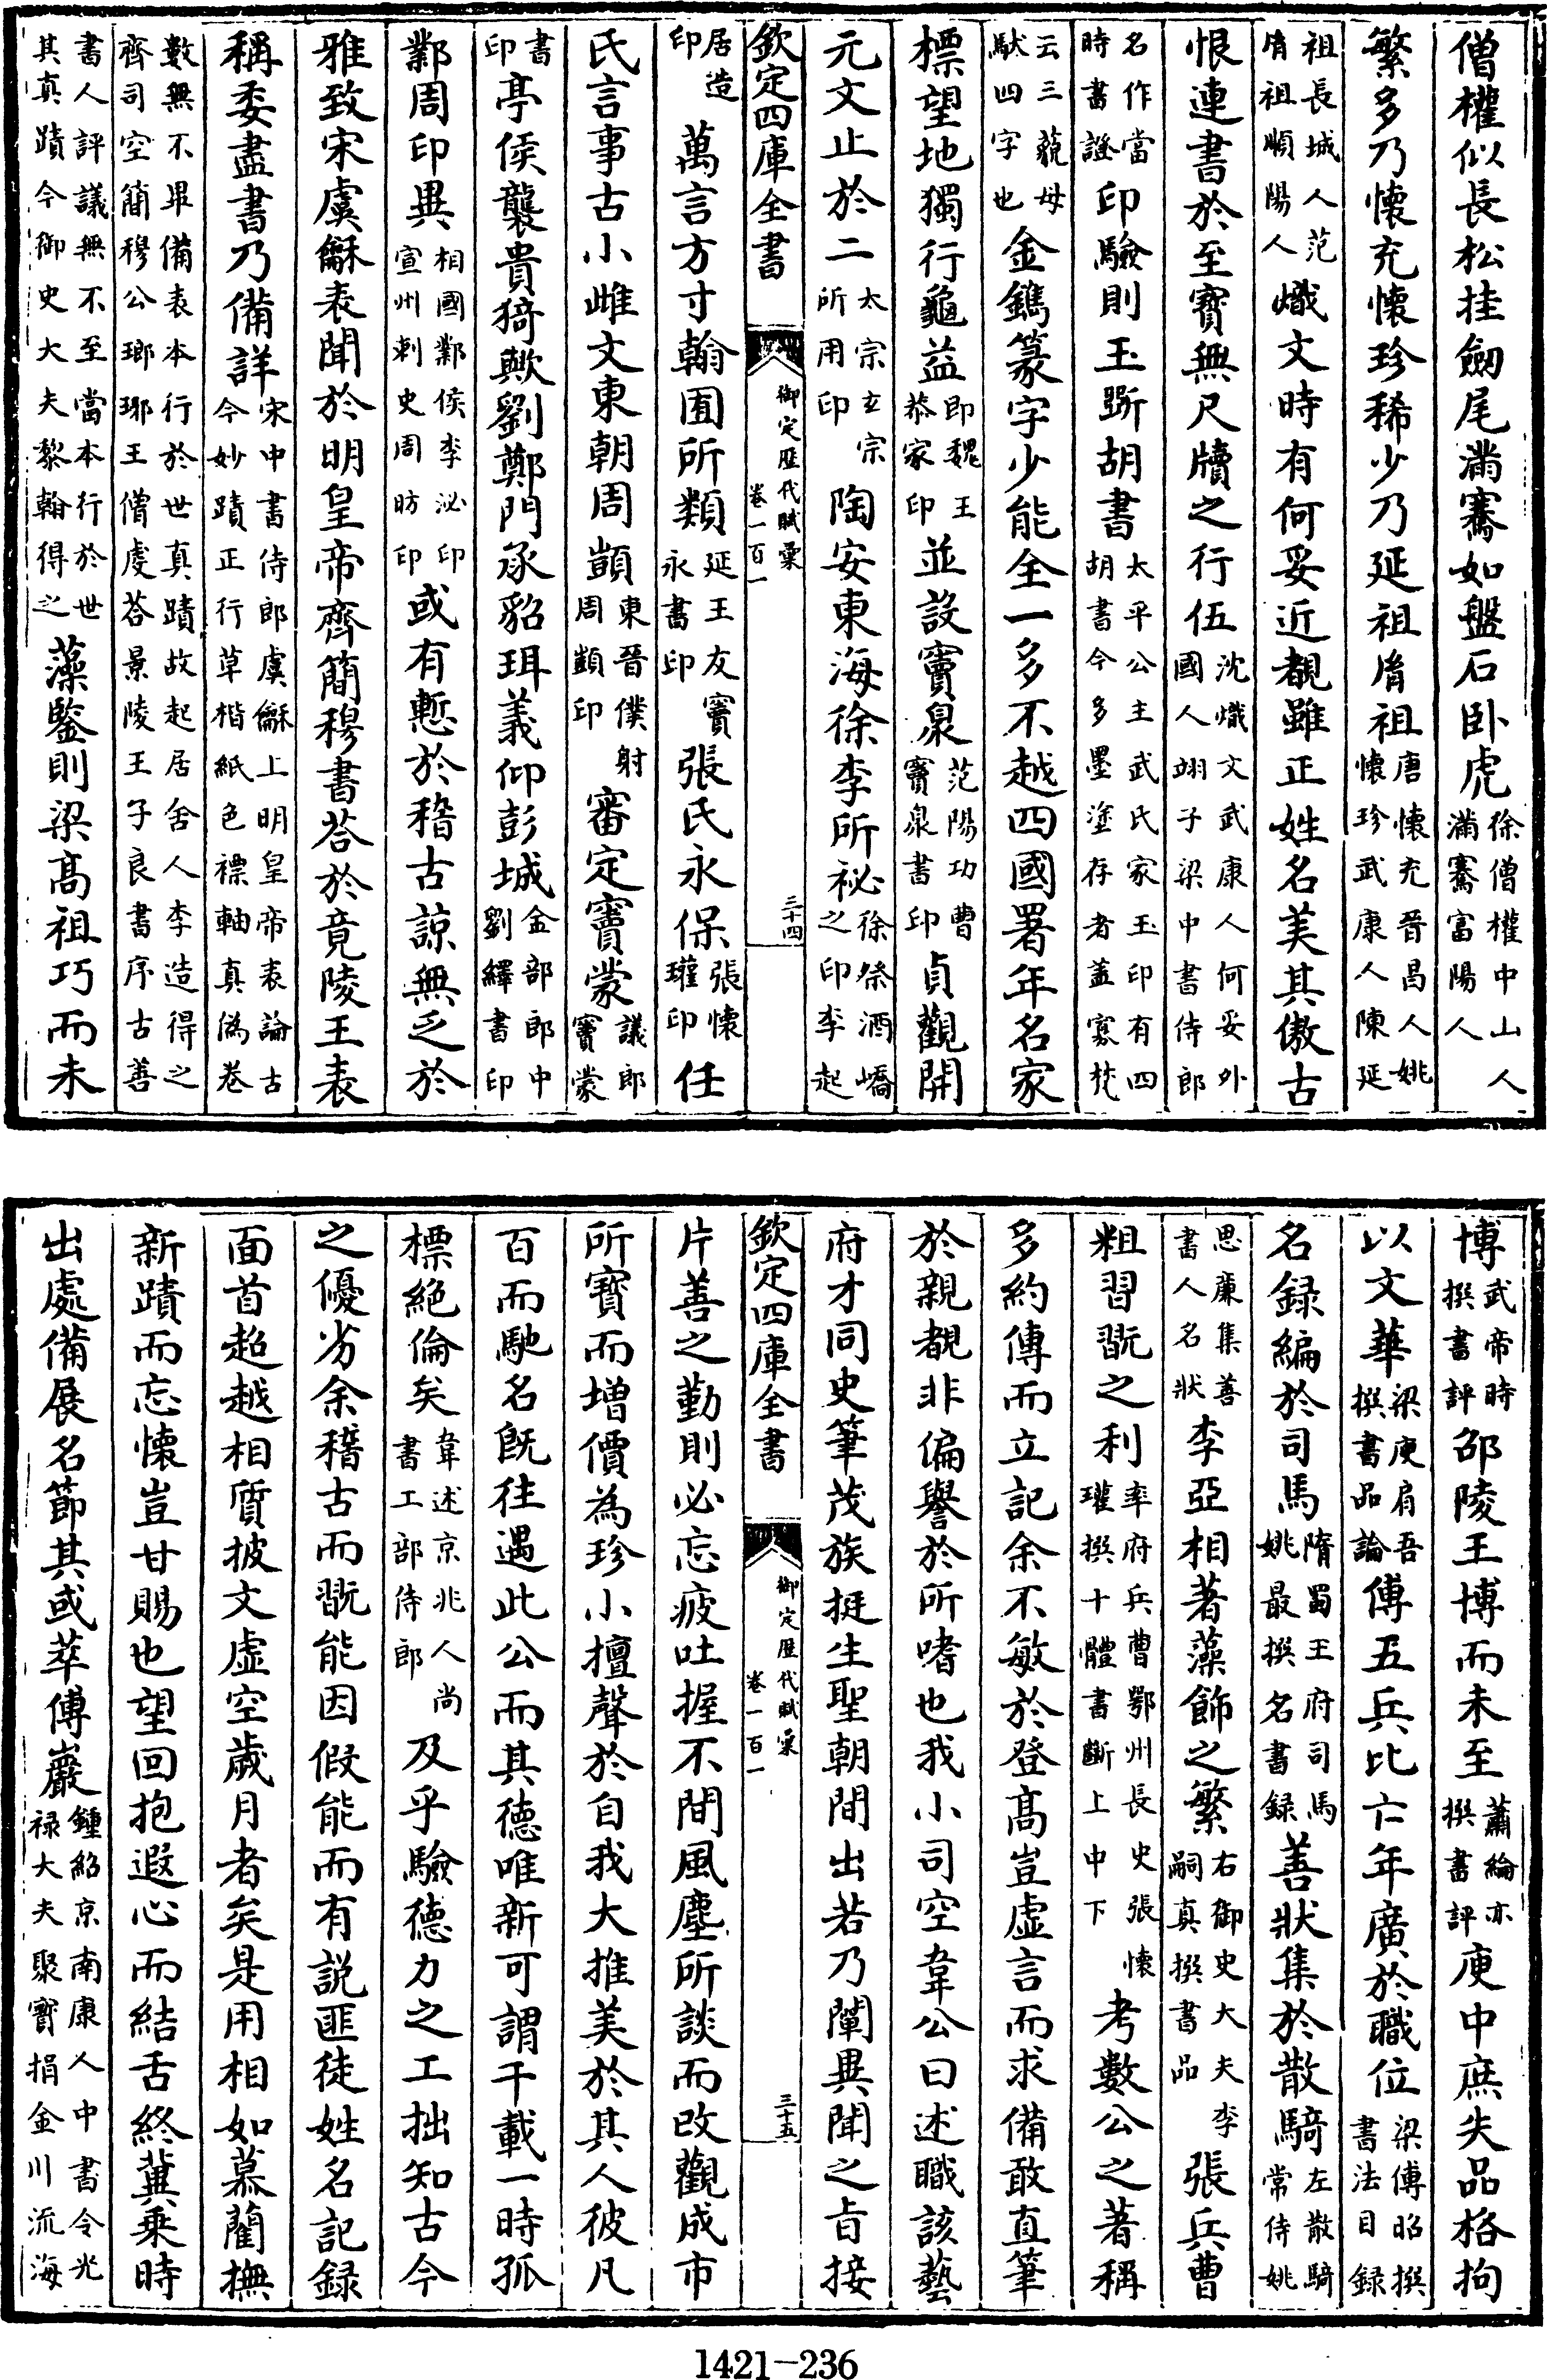 僧權似長松挂劒尾滿騫如盤石卧虎徐僧權中山人滿騫富陽人
繁多乃懷充懷珍稀少乃延祖胤祖唐懷充晉昌人姚懷珍武康人陳延
祖長城人范胤祖順陽人熾文時有何妥近覩雖正姓名美其倣古
恨連書於至寳無尺牘之行伍沈熾文武康人何妥外國人翊子梁中書侍郎
名作當時書證印驗則玉斲胡書太平公主武氏家玉印有四胡書今多墨塗存者盖寡梵
云三藐母馱四字也金鐫篆字少能全一多不越四國署年名家
標望地獨行龜益即魏王恭家印並設竇泉范陽功曹竇泉書印貞觀開
元文止於二太宗玄宗所用印陶安東海徐李所祕徐祭酒嶠之印李起
欽定四庫全書 御定歴代賦彙 卷一百一 三十四
居造印萬言方寸翰囿所類延王友竇永書印張氏永保張懷瓘印任
氏言事古小雌文東朝周顗東晉僕射周顗印審定竇蒙議郎竇蒙
書印亭侯襲貴猗歟劉鄭門承貂珥義仰彭城金部郎中劉繹書印
鄴周印異相國鄴侯李泌印宣州刺史周昉印或有慙於稽古諒無乏於
雅致宋虞龢表聞於明皇帝齊簡穆書荅於竟陵王表
稱委盡書乃備詳宋中書侍郎虞龢上明皇帝表論古今妙蹟正行草楷紙色褾軸真偽卷
數無不畢備表本行於世真蹟故起居舍人李造得之齊司空簡穆公瑯琊王僧虔荅景陵王子良書序古善
書人評議無不至當本行於世其真蹟今御史大夫黎翰得之藻鑒則梁髙祖巧而未
博武帝時撰書評邵陵王博而未至蕭綸亦撰書評庾中庶失品格拘
以文華梁庾肩吾撰書品論傅五兵比亡年廣於職位梁傅昭撰書法目録
名録編於司馬隋蜀王府司馬姚最撰名書録善狀集於散騎左散騎常侍姚
思亷集善書人名狀李亞相著藻飾之繁右御史大夫李嗣真撰書品張兵曹
粗習翫之利率府兵曹鄂州長史張懷瓘撰十體書斷上中下考數公之著稱
多約傅而立記余不敏於登髙豈虚言而求備敢直筆
於親覩非偏譽於所嗜也我小司空韋公曰述職該藝
府才同史筆茂族挺生聖朝間出若乃闡異聞之㫖接
欽定四庫全書 御定歴代賦彙 卷一百一 三十五
片善之勤則必忘疲吐握不間風塵所談而改觀成市
所寳而增價為珍小擅聲於自我大推美於其人彼凡
百而馳名旣往遇此公而其德唯新可謂千載一時孤
標絶倫矣韋述京兆人尚書工部侍郎及乎驗德力之工拙知古今
之優劣余稽古而翫能因假能而有説匪徒姓名記録
面首超越相質披文虚空歳月者矣是用相如慕藺撫
新蹟而忘懷豈甘賜也望回抱遐心而結舌終冀乗時
出處備展名節其或萃傅巖鍾紹京南康人中書令光禄大夫聚寳捐金川流海
1421-236